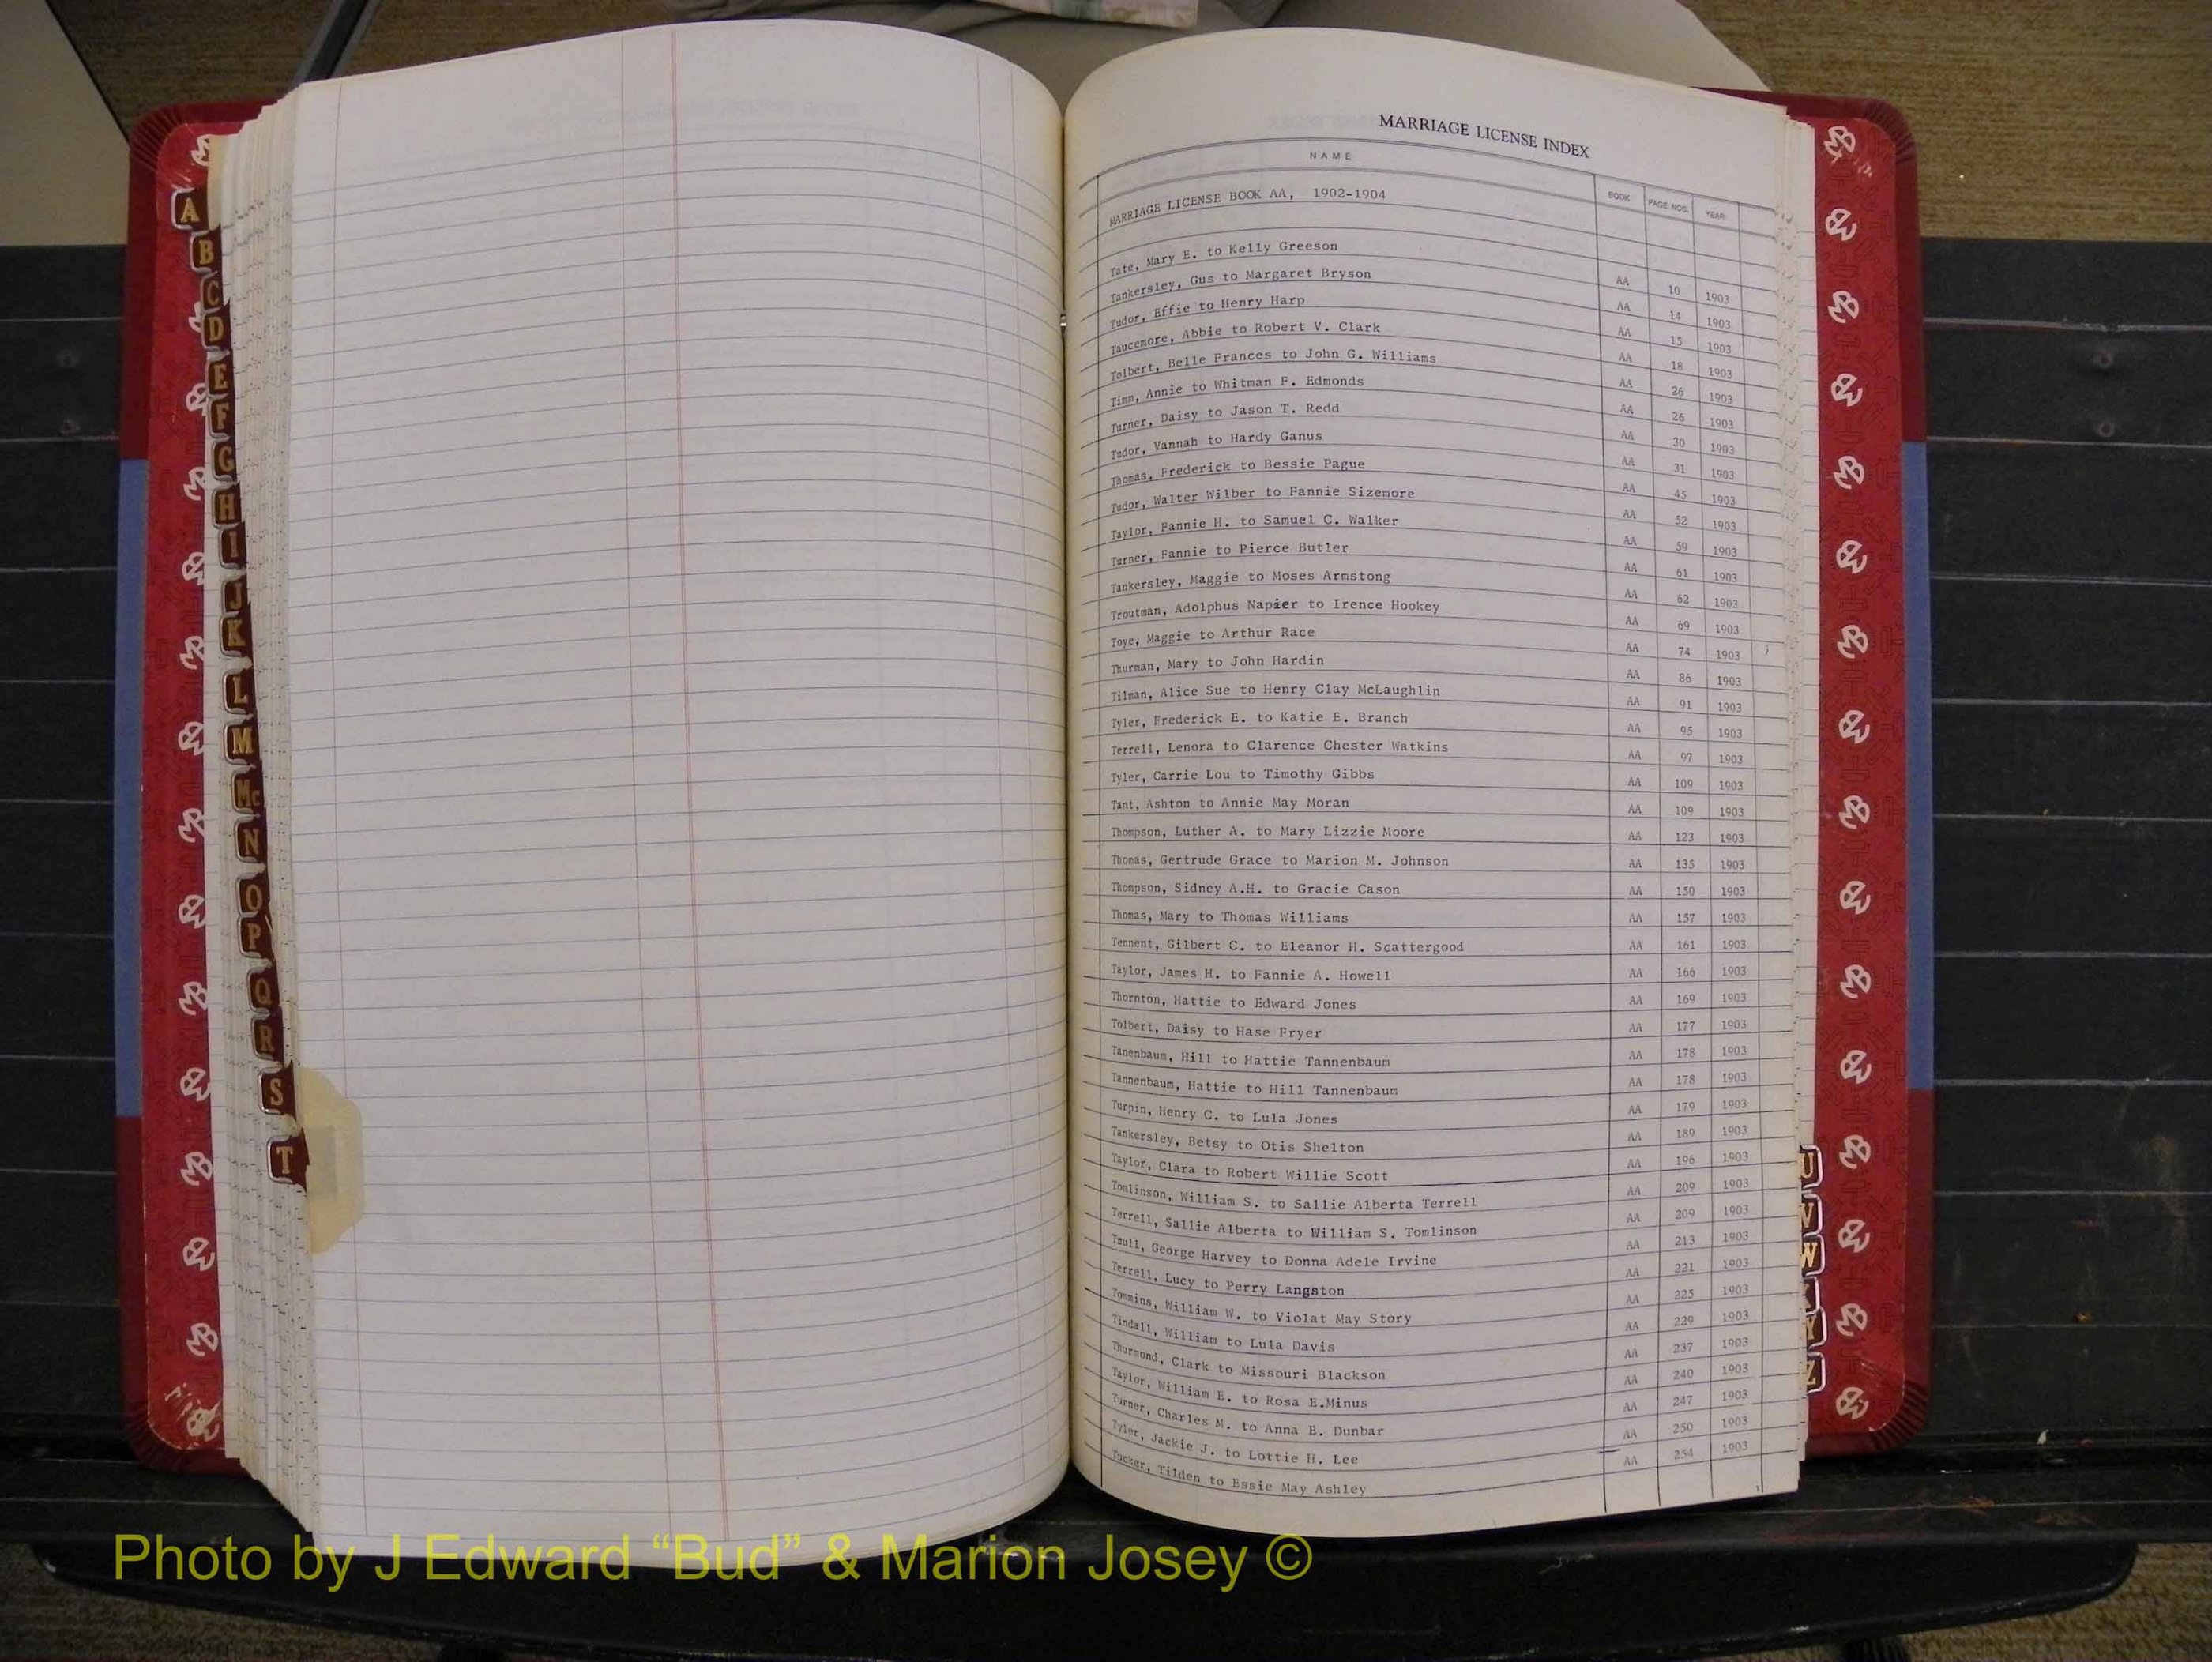 MARRIAGE LICENSE INDEX
NAME BOOK PAGE NOS. YEAR
MARRIAGE LICENSE BOOK AA, 1902-1904
Tate, Mary E. to Kelly Greeson AA 10 1903
Tankersley, Gus to Margaret Bryson AA 14 1903
Tudor, Effie to Henry Harp AA 15 1903
Taucemore, Abbie to Robert V. Clark AA 18 1903
Tolbert, Belle Frances to John G. Williams AA 26 1903
Timm, Annie to Whitman F. Edmonds AA 26 1903
Turner, Daisy to Jason T. Redd AA 30 1903
Tudor, Vannah to Hardy Ganus AA 31 1903
Thomas, Frederick to Bessie Pague AA 45 1903
Tudor, Walter Wilber to Fannie Sizemore AA 52 1903
Taylor, Fannie H. to Samuel C. Walker AA 59 1903
Turner, Fannie to Pierce Butler AA 61 1903
Tankersley, Maggie to Moses Armstong AA 62 1903
Troutman, Adolphus Napier to Irence Hookey AA 69 1903
Toye, Maggie to Arthur Race AA 74 1903
Thurman, Mary to John Hardin AA 86 1903
Tilman, Alice Sue to Henry Clay McLaughlin AA 91 1903
Tyler, Frederick E. to Katie E. Branch AA 95 1903
Terrell, Lenora to Clarence Chester Watkins AA 97 1903
Tyler, Carrie Lou to Timothy Gibbs AA 109 1903
Tant, Ashton to Annie May Moran AA 109 1903
Thompson, Luther A. to Mary Lizzie Moore AA 123 1903
Thomas, Gertrude Grace to Marion M. Johnson AA 135 1903
Thompson, Sidney A.H. to Gracie Cason AA 150 1903
Thomas, Mary to Thomas Williams AA 157 1903
Tennent, Gilbert C. to Eleanor H. Scattergood AA 161 1903
Taylor, James H. to Fannie A. Howell AA 166 1903
Thornton, Hattie to Edward Jones AA 169 1903
Tolbert, Daisy to Hase Fryer AA 177 1903
Tanenbaum, Hill to Hattie Tannenbaum AA 178 1903
Tannenbaum, Hattie to Hill Tannenbaum AA 178 1903
Turpin, Henry C. to Lula Jones AA 179 1903
Tankersley, Betsy to Otis Shelton AA 189 1903
Taylor, Clara to Robert Willie Scott AA 196 1903
Tomlinson, William S. to Sallie Alberta Terrell AA 209 1903
Terrell, Sallie Alberta to William S. Tomlinson AA 209 1903
Trull, George Harvey to Donna Adele Irvine AA 213 1903
Terrell, Lucy to Perry Langston AA 221 1903
Tommins, William W. to Violat May Story AA 225 1903
Tindall, William to Lula Davis AA 229 1903
Thurmond, Clark to Missouri Blackson AA 237 1903
Taylor, William E. to Rosa E.Minus AA 240 1903
Turner, Charles M. to Anna E. Dunbar AA 247 1903
Tyler, Jackie J. to Lottie H. Lee AA 250 1903
Tucker, Tilden to Essie May Ashley AA 254 1903
A
B
C
D
E
F
G
H
I
J
K
L
M
Mc
N
O
P
Q
R
S
T
U
V
W
Y
Z
Photo by J Edward “Bud” & Marion Josey ©